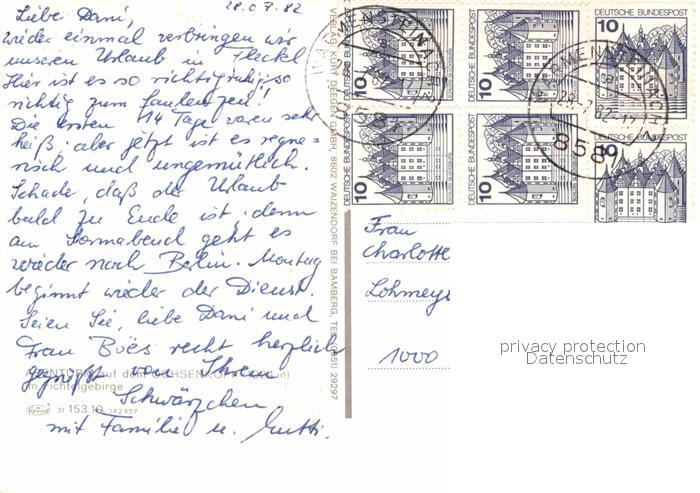 28.07.82
Liebe Dani,
wieder einmal verbringen wir
unseren Urlaub in Fleckl
Hier ist es so richtig ruhig, so
richtig zum faulenzen!
Die ersten 14 Tage waren sehr
heiß, aber jetzt ist es regne-
risch und ungemütlich.
Schade, daß der Urlaub
bald zu Ende ist, denn
am Sonnabend geht es
wieder nach Berlin. Montag
beginnt wieder der Dienst.
Seien Sie, liebe Dani und
Frau Böes recht herzlich
gegrüßt von Ihrem
Schwärzchen
mit Familie u. Mutti.
auf dem OCHSENKOPF
im Fichtelgebirge
31 153.10 242457
VERLAG KURT DEGEN GMBH, 8602 WAIZENDORF BEI BAMBERG, TEL. 29297
DEUTSCHE BUNDESPOST
10
DEUTSCHE BUNDESPOST
10
DEUTSCHE BUNDESPOST
10
DEUTSCHE BUNDESPOST
10
DEUTSCHE BUNDESPOST
10
DEUTSCHE BUNDESPOST
10
WARMENSTEINACH
8581
Frau
Charlotte
Lohmey
1000
privacy protection
Datenschutz